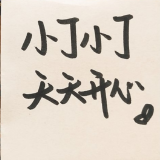 小丁小丁
天天开心